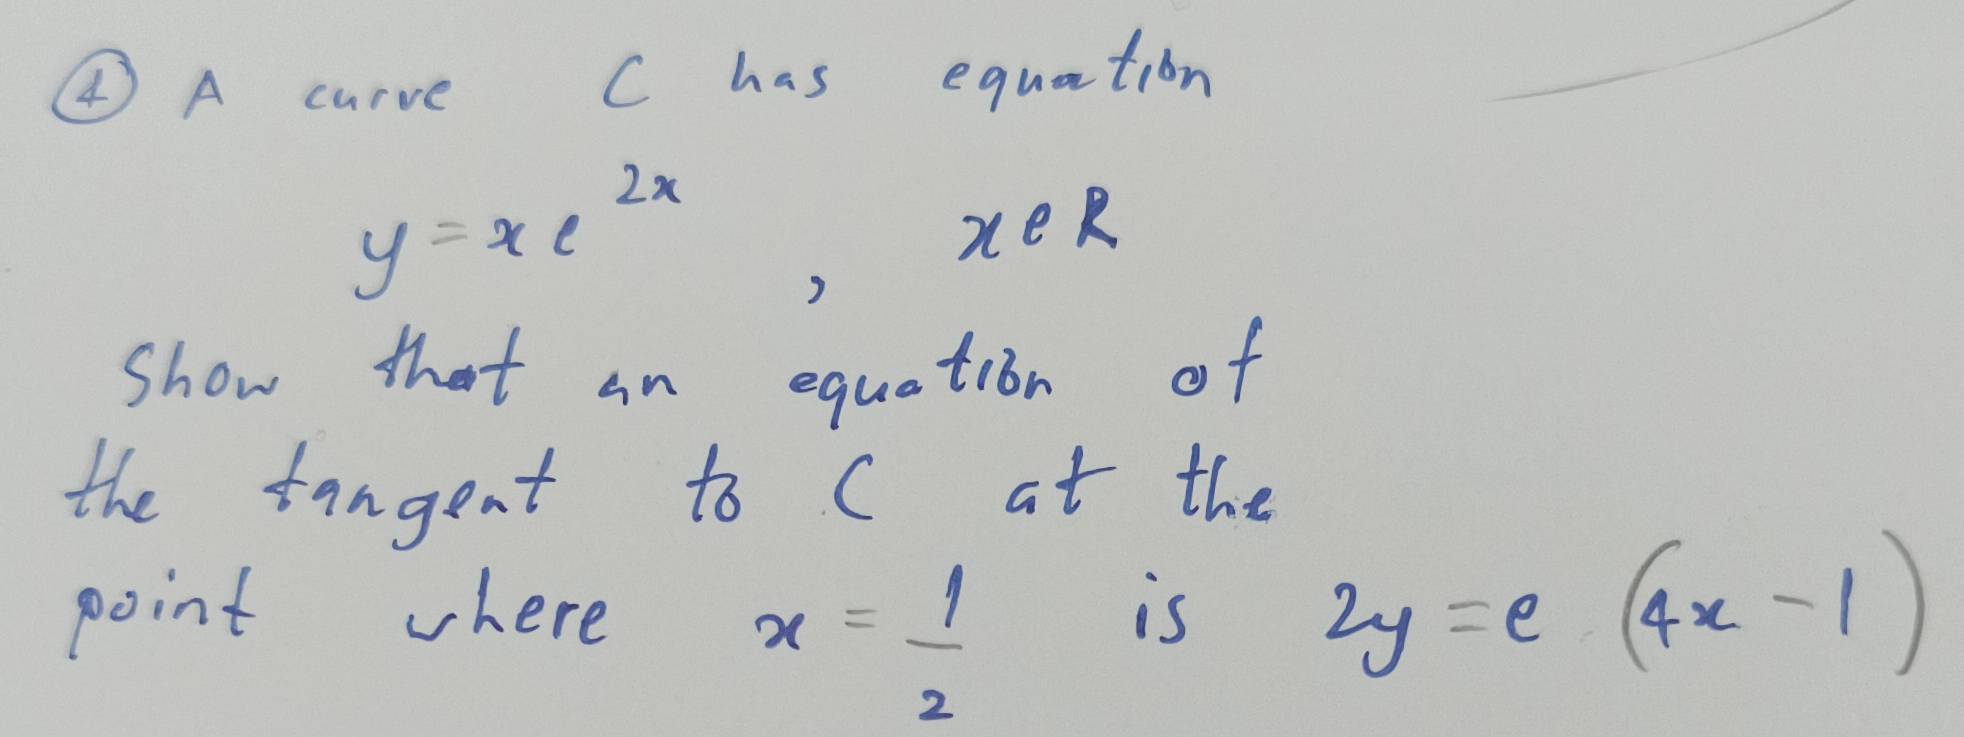 ④ A curve C has equation
y = x e^{2x} , x e R
Show that an equation of
the tangent to C at the
point where x = 1/2 is 2y = e (4x - 1)